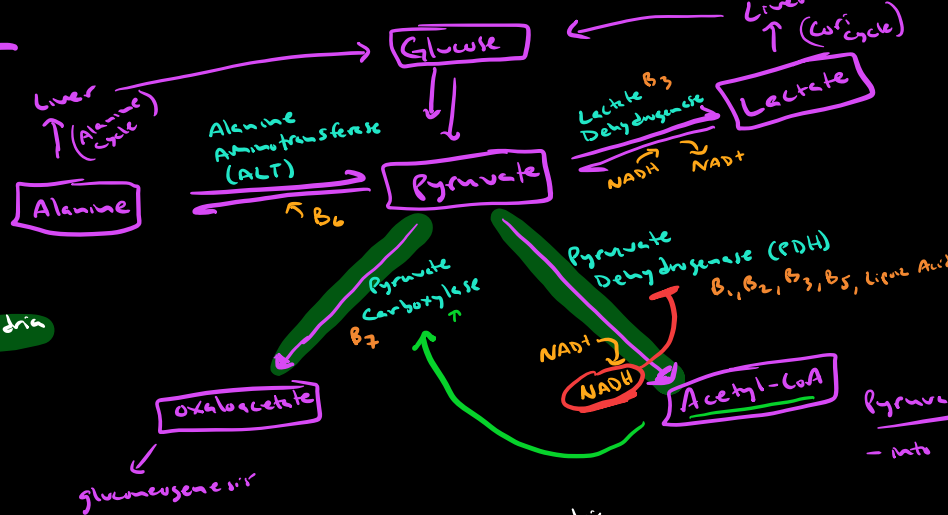 Liver
(Cori
cycle)
Glucose
Liver
(Alanine
cycle)
Alanine
Aminotransferase
(ALT)
Lactate B3
Dehydrogenase
Lactate
NADH
NAD+
Alanine
B6
Pyruvate
Pyruvate
Carboxylase
B7
Pyruvate
Dehydrogenase (PDH)
B1, B2, B3, B5, Lipoic Acid
dria
NAD+
NADH
Acetyl-CoA
oxaloacetate
gluconeogenesis
Pyruva
- into